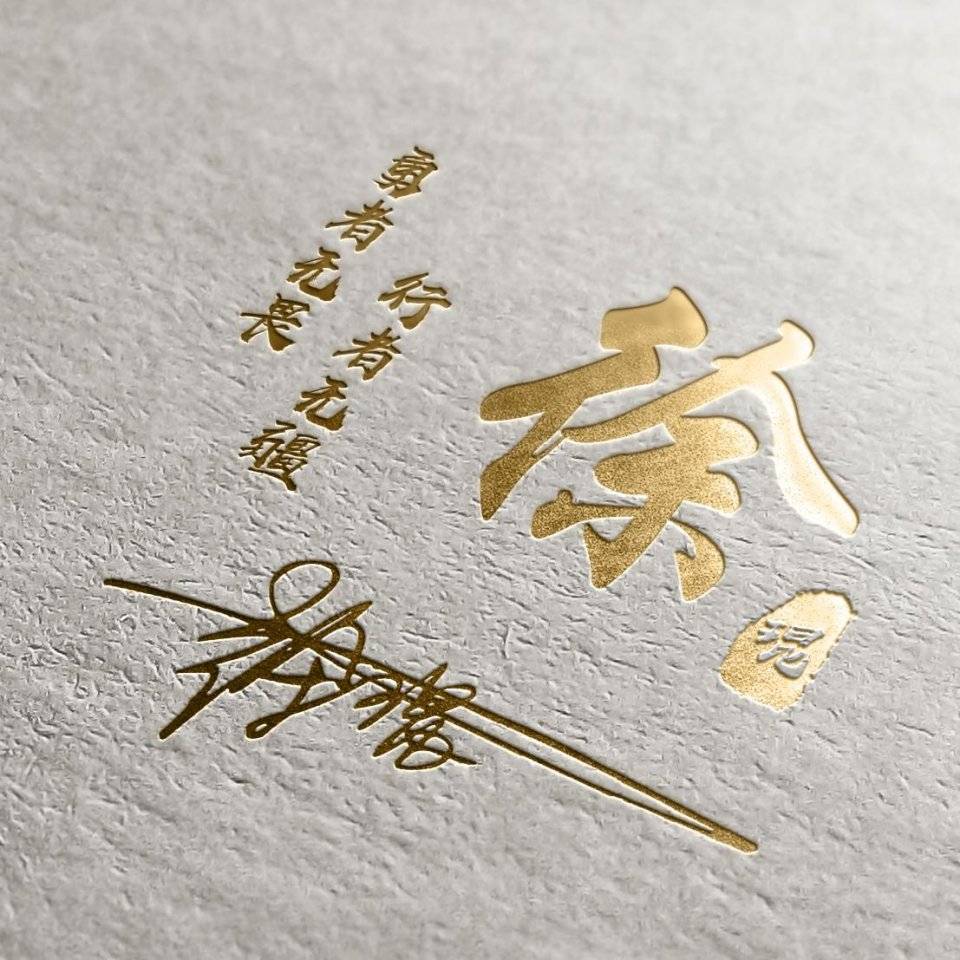 勇者无畏
行者无疆
徐
混